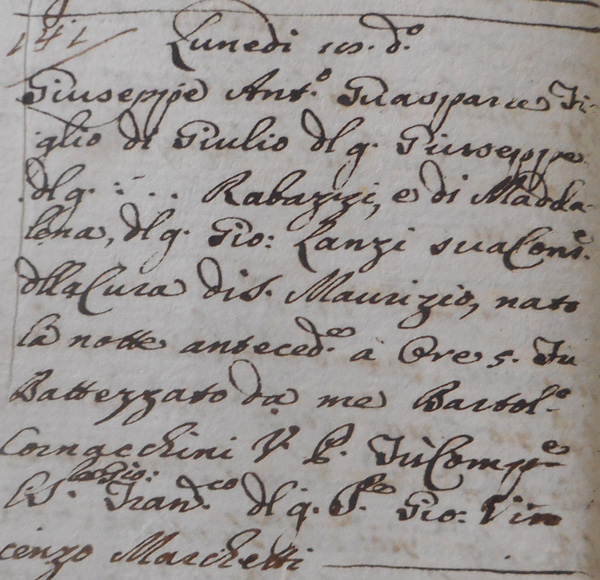 141
Lunedi 15. d.º
Giuseppe Ant.º Guaspare Fi-
glio di Giulio dlq. Giuseppe
dlq. . . . Rabazzi, e di Madda-
lena, dlq. Gio: Lanzi sua Cons.e
dlla Cura di S. Maurizio, nato
la notte anteced.e a Ore 5. Fu
Battezzato da me Bartol.º
Cornacchini V. P. Fù Comp.e
Gio:
Il S. Fran.co dlq. S.e Gio: Vin
cenzo Marchetti